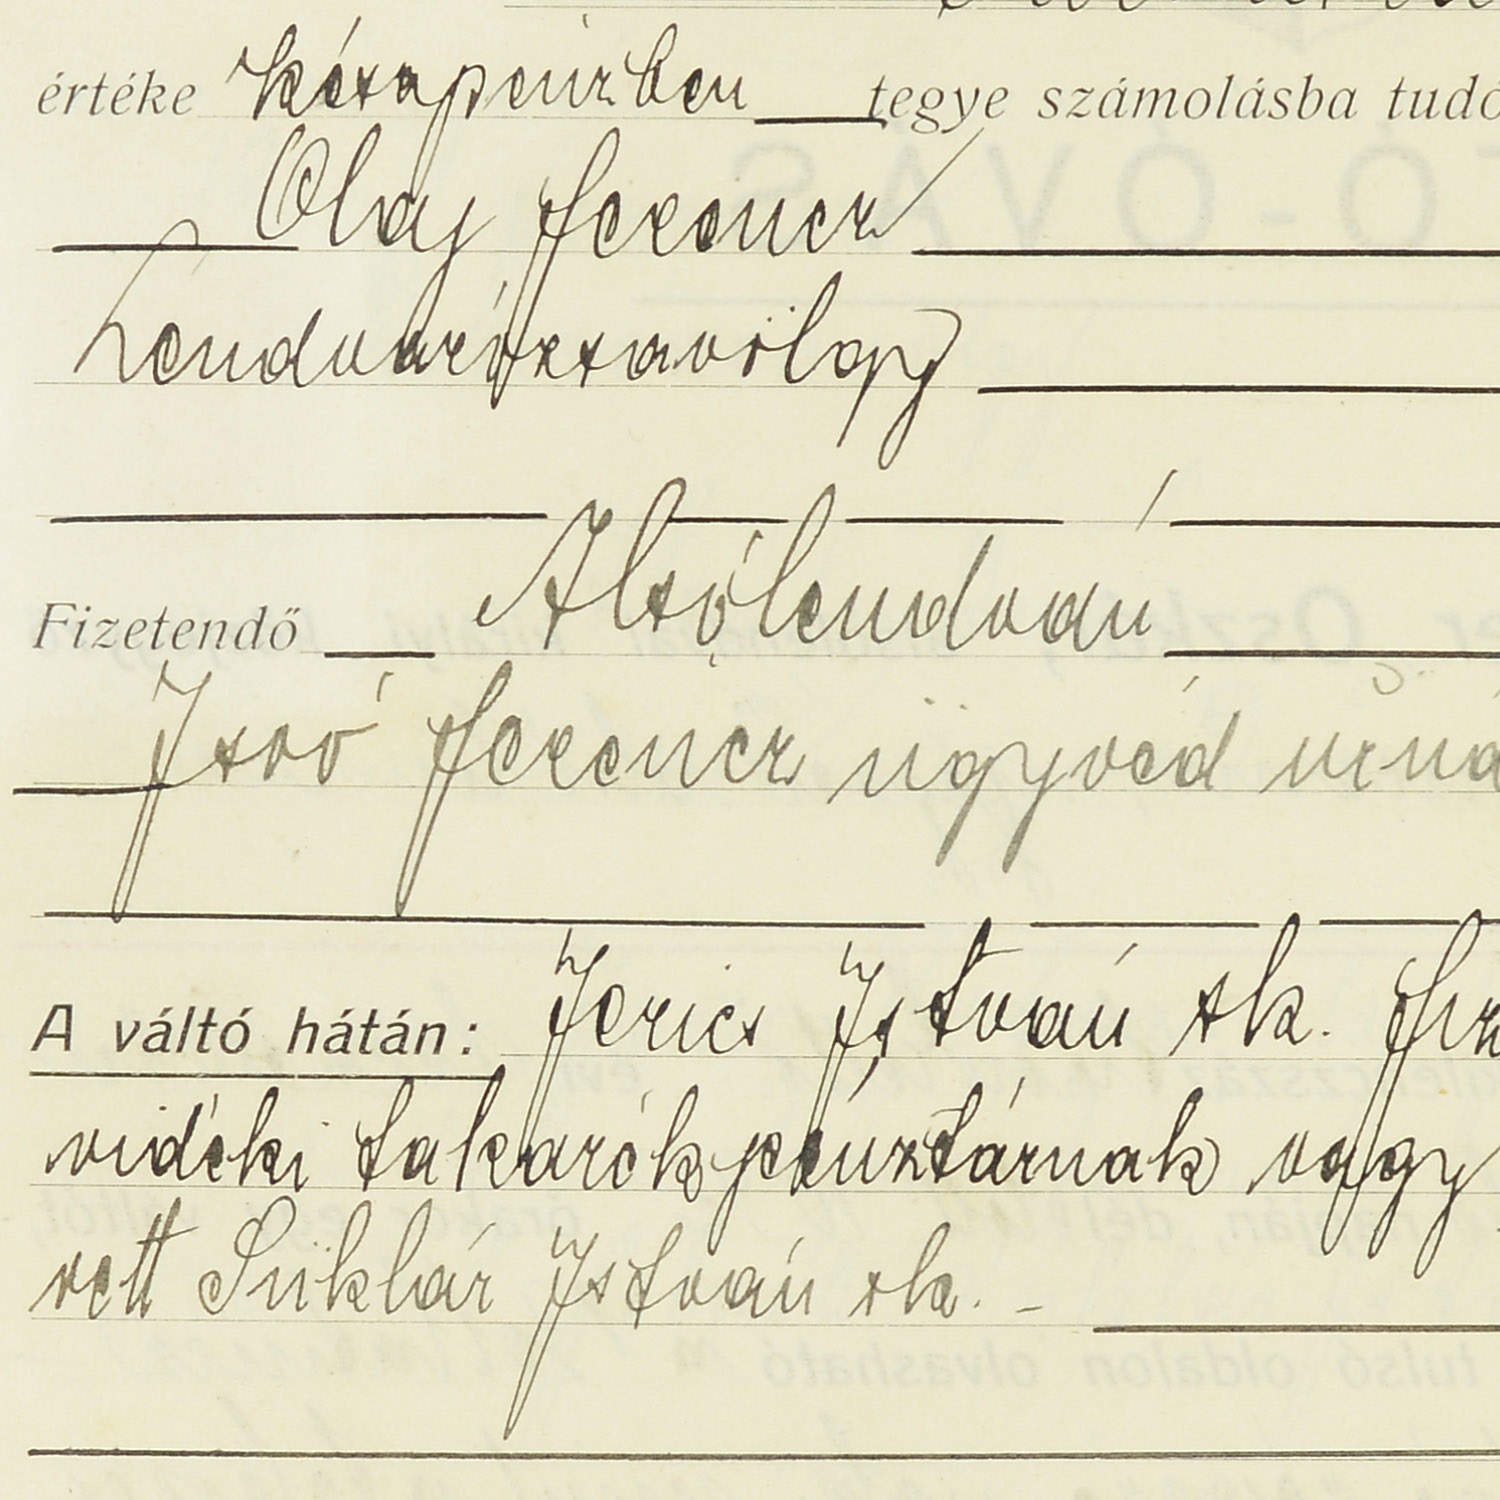 értéke készpénzben tegye számolásba tudó
Olaj Ferencz
Lendvarózsavölgy
Fizetendő Alsólendván
Isoó Ferencz ügyvéd urná
A váltó hátán: Jerics István sk.
vidéki takarékpénztárnak vagy
vett Süklár István sk. -